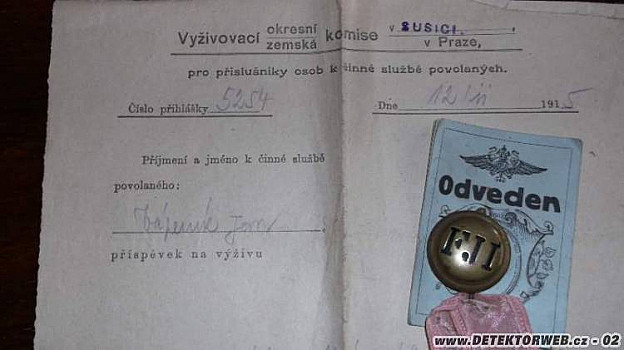 Vyživovací okresní zemská komise v SUSICI.
v Praze,
pro příslušníky osob k činné službě povolaných.
Číslo přihlášky 5254
Dne 12/VI 1915
Příjmení a jméno k činné službě
povolaného:
Vápeník Jan
příspěvek na výživu
Odveden
FJI
www.DETEKTORWEB.cz - 02